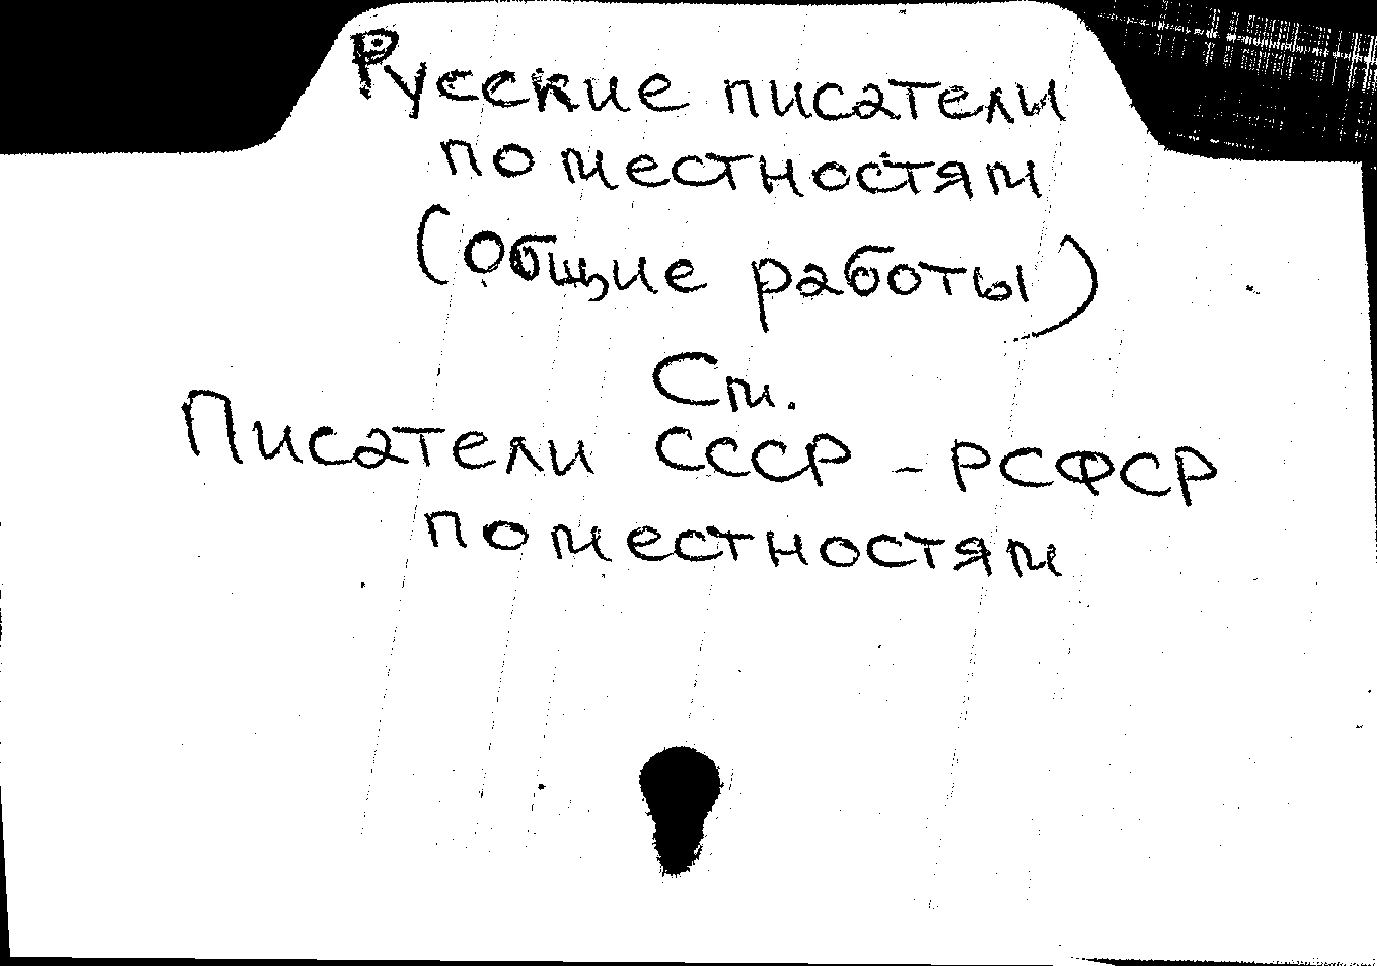 Русские писатели
по местностям
(Общие работы)
См.
Писатели СССР - РСФСР
по местностям